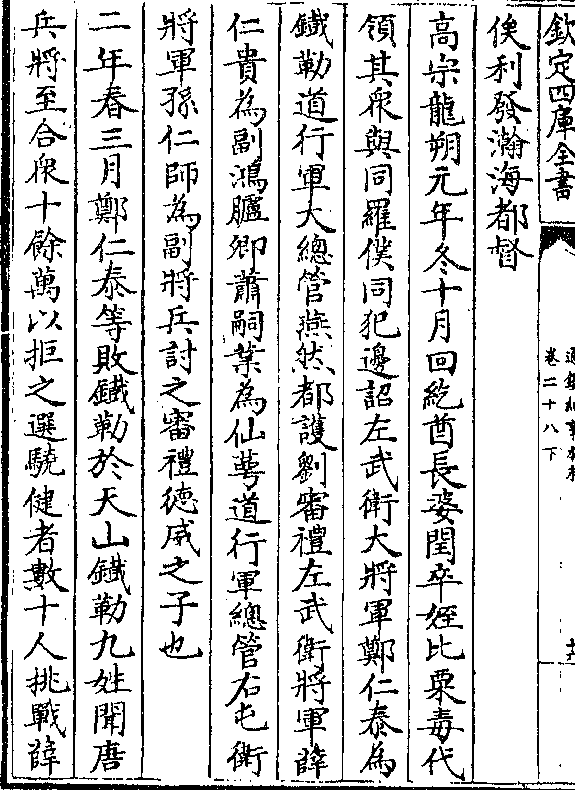 欽定四庫全書
通鑑紀事本末
卷二十八下
俟利發瀚海都督
高宗龍朔元年冬十月回紇酋長婆閏卒姪比粟毒代
領其衆與同羅僕同犯邊詔左武衛大將軍鄭仁泰為
鐵勒道行軍大總管燕然都護劉審禮左武衛將軍薛
仁貴為副鴻臚卿蕭嗣業為仙萼道行軍總管右屯衛
將軍孫仁師為副將兵討之審禮德威之子也
二年春三月鄭仁泰等敗鐵勒於天山鐵勒九姓聞唐
兵將至合衆十餘萬以拒之選驍健者數十人挑戰薛